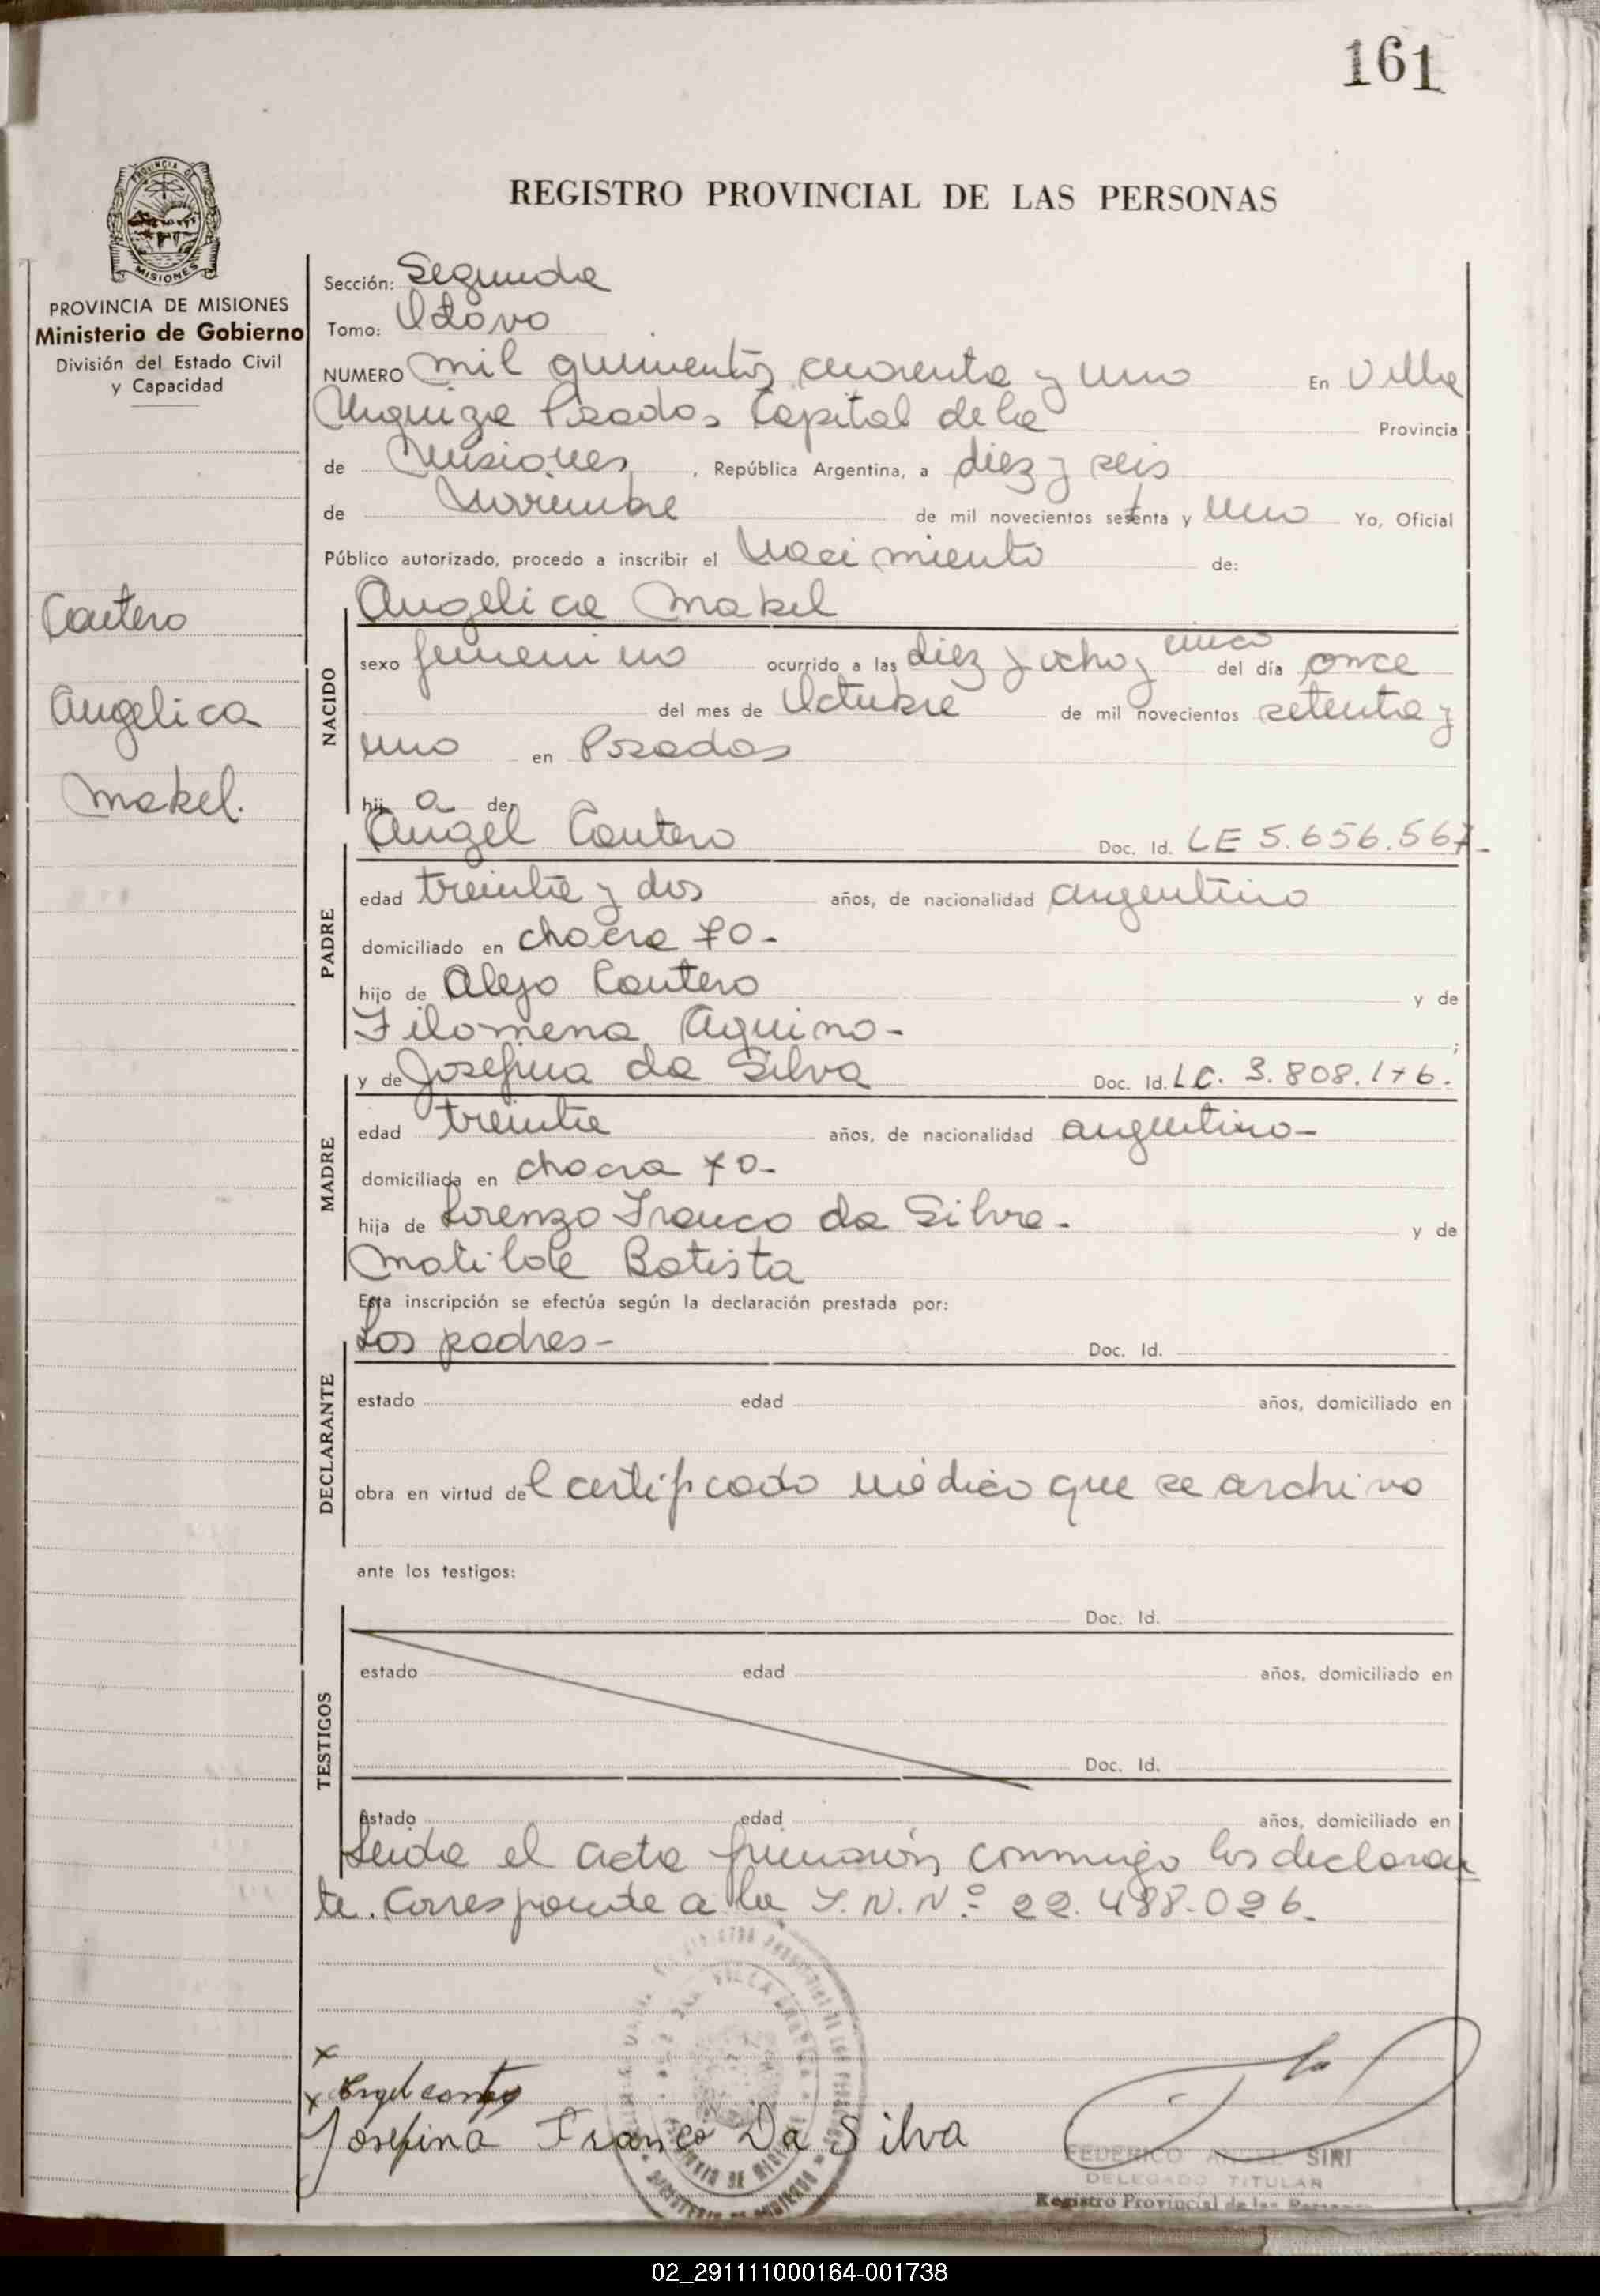 161
PROVINCIA DE
MISIONES
PROVINCIA DE MISIONES
Ministerio de Gobierno
División del Estado Civil
y Capacidad
REGISTRO PROVINCIAL DE LAS PERSONAS
Sección: Segunda
Tomo: Octavo
NUMERO mil quinientos cuarenta y uno En Villa
Urquiza Posadas Capital de la Provincia
de Misiones, República Argentina, a diez y seis
de Noviembre de mil novecientos setenta y uno Yo, Oficial
Público autorizado, procedo a inscribir el Nacimiento de:
Cantero
Angelica
Makel.
NACIDO
Angelica Makel
sexo femenino ocurrido a las diez y ocho y cinco del día once
del mes de Octubre de mil novecientos setenta y
uno en Posadas
hij a de
PADRE
Angel Cantero Doc. Id. LE 5.656.567-
edad treinta y dos años, de nacionalidad argentino
domiciliado en chacra 70-
hijo de Alejo Cantero y de
Filomena Aquino- ;
MADRE
y de Josefina da Silva Doc. Id. LC. 3.808.176.
edad treinta años, de nacionalidad argentino-
domiciliada en chacra 70-
hija de Lorenzo Franco da Silva- y de
Matilde Batista
Esta inscripción se efectúa según la declaración prestada por:
DECLARANTE
Los padres- Doc. Id.
estado edad años, domiciliado en
obra en virtud del certificado médico que se archiva
ante los testigos:
TESTIGOS
Doc. Id.
estado edad años, domiciliado en
Doc. Id.
estado edad años, domiciliado en
Leida el acta firmaron conmigo los declaran
te. Corresponde a la I.N.Nº 22.488.026.
x
x Angel
Josefina Franco Da Silva
FEDERICO ANGEL SIRI
DELEGADO TITULAR
Registro Provincial de las Personas
02_291111000164-001738